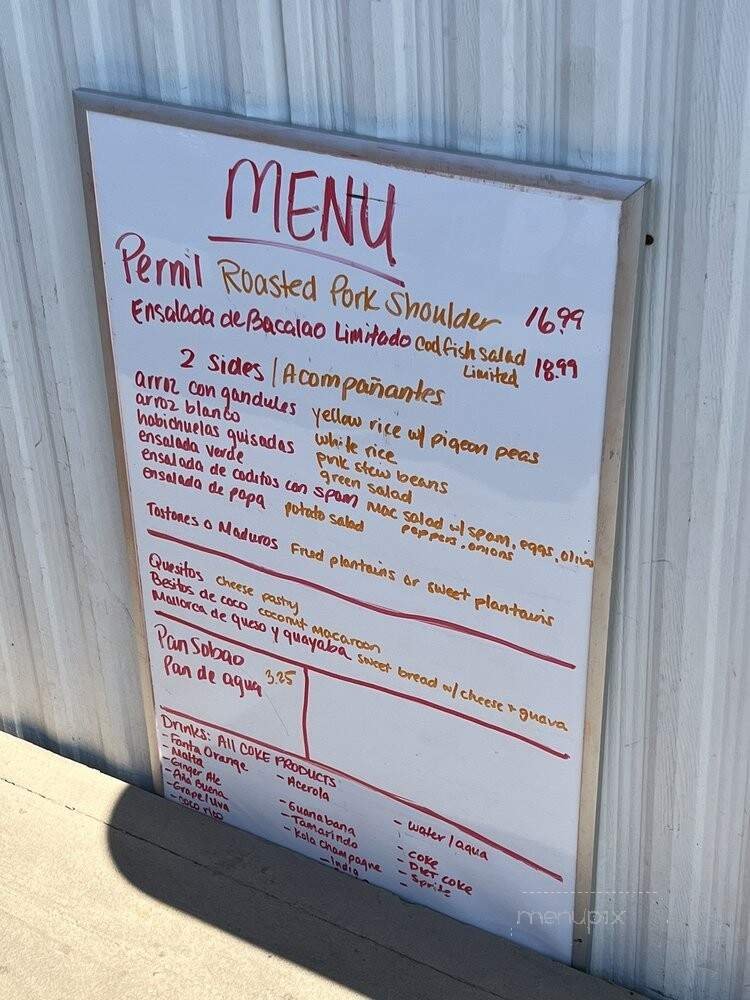 MENU
Pernil Roasted Pork Shoulder 16.99
Ensalada de Bacalao Limitado Codfish salad Limited 18.99
2 Sides / Acompañantes
arroz con gandules yellow rice w/ pigeon peas
arroz blanco white rice
habichuelas guisadas pink stew beans
ensalada verde green salad
ensalada de coditos con spam Mac salad w/ spam, eggs, olive
peppers, onions
ensalada de papa potato salad
Tostones o Maduros Fried plantains or sweet plantains
Quesitos cheese pastry
Besitos de coco coconut macaroon
Mallorca de queso y quayaba sweet bread w/ cheese + guava
Pan Sobao
Pan de agua 3.25
Drinks: All COKE PRODUCTS
- Fanta Orange
- Malta
- Ginger Ale
- Piña Buena
- Grape/Uva
- coco rico
- Acerola
- Guanabana
- Tamarindo
- Kola Champagne
- India
- Water / agua
- COKE
- DIET COKE
- Sprite
menupix